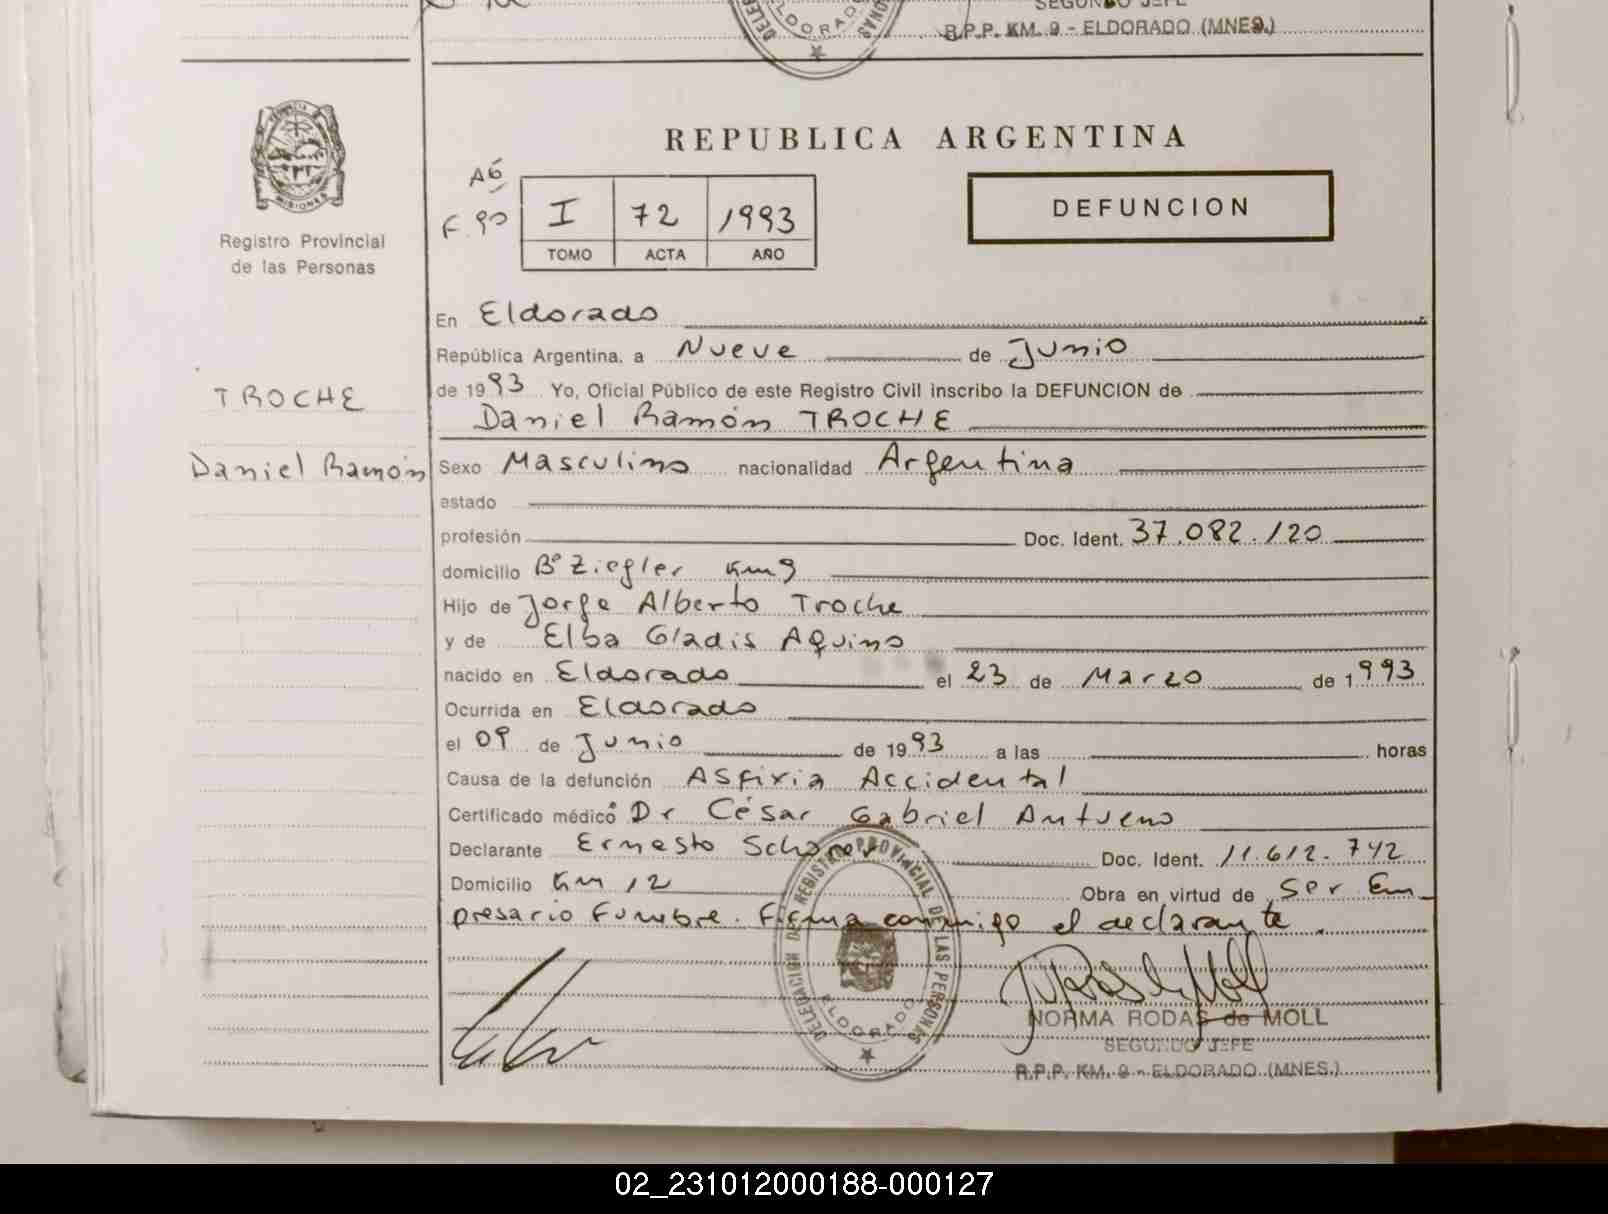 SEGUNDO JEFE
R.P.P. KM. 9 - ELDORADO (MNES.)
REPUBLICA ARGENTINA
MISIONES
Registro Provincial
de las Personas
A6
F. 90
I 72 1993
TOMO ACTA AÑO
DEFUNCION
En Eldorado
República Argentina, a Nueve de Junio
de 1993 Yo, Oficial Público de este Registro Civil inscribo la DEFUNCION de
TROCHE
Daniel Ramón TROCHE
Daniel Ramón
Sexo Masculino nacionalidad Argentina
estado
profesión Doc. Ident. 37.082.120
domicilio Bº Ziegler Km 9
Hijo de Jorge Alberto Troche
y de Elba Gladis Aquino
nacido en Eldorado el 23 de Marzo de 1993
Ocurrida en Eldorado
el 09 de Junio de 1993 a las horas
Causa de la defunción Asfixia Accidental
Certificado médico Dr César Gabriel Antueno
Declarante Ernesto Doc. Ident. 11.612.742
Domicilio Km 12 Obra en virtud de Ser Em-
presario Funebre. Firma conmigo el declarante.
DELEGACION DEL REGISTRO PROVINCIAL DE LAS PERSONAS
ELDORADO
NORMA RODAS de MOLL
SEGUNDO JEFE
R.P.P. KM. 9 - ELDORADO (MNES.)
02_231012000188-000127